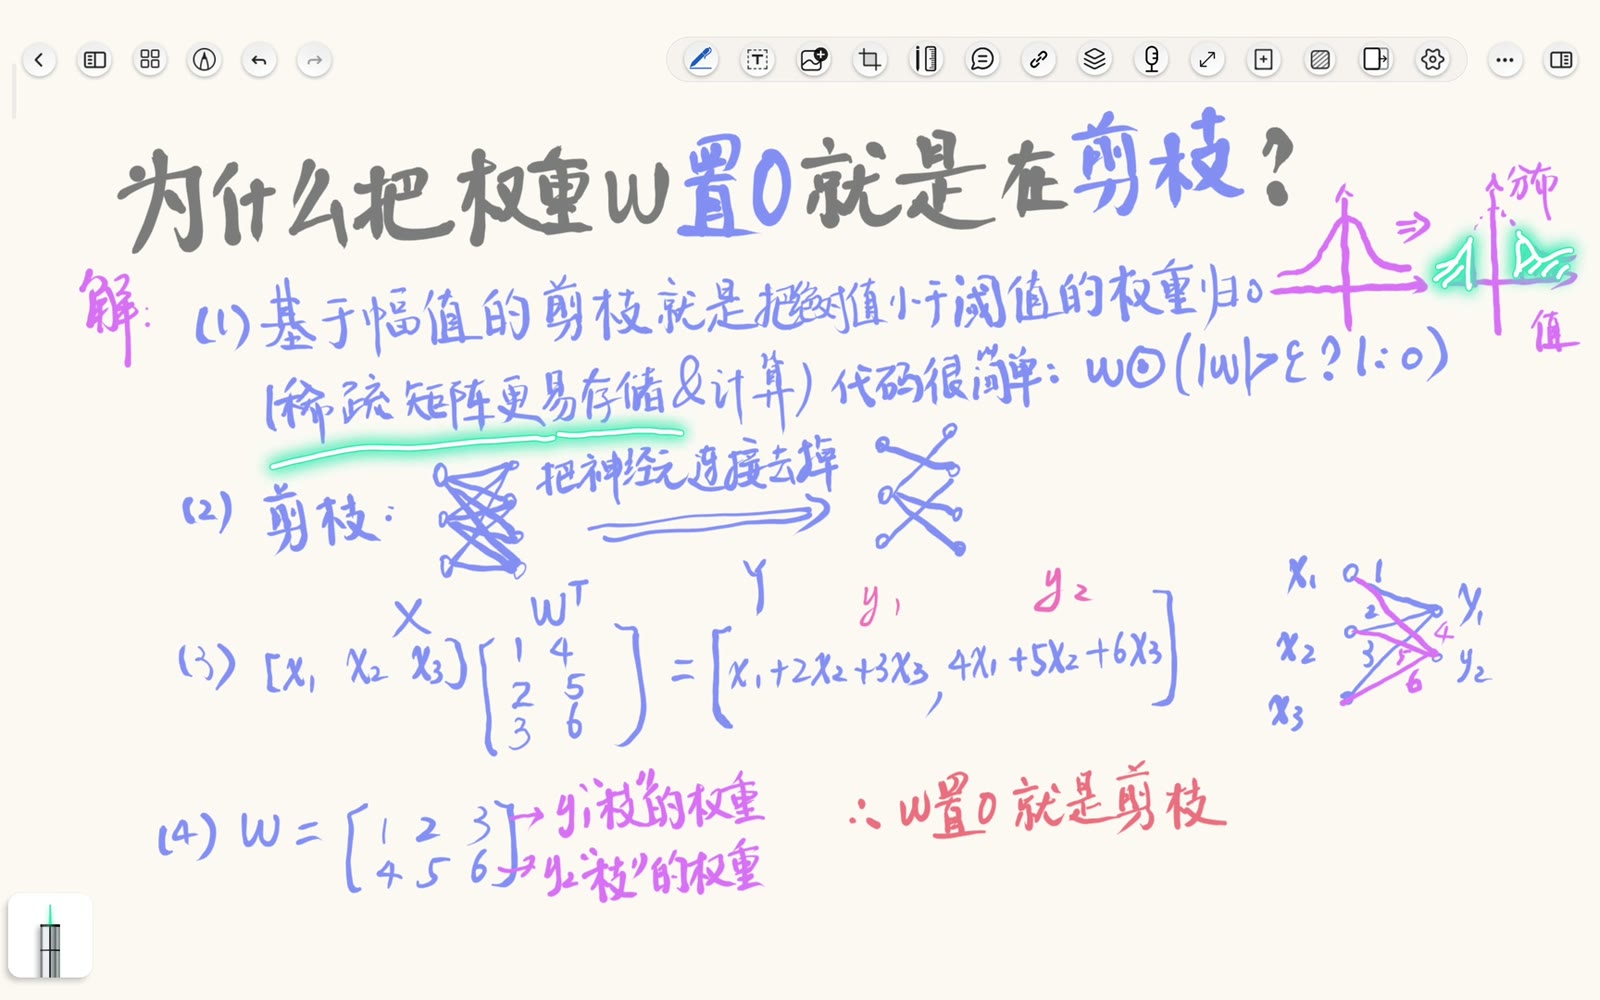 为什么把权重W置0就是在剪枝?
分布
值
解:
(1) 基于幅值的剪枝就是把绝对值小于阈值的权重归0
(稀疏矩阵更易存储&计算) 代码很简单: W⊙(|W|>ε?1:0)
(2) 剪枝: 把神经元连接去掉
X Wᵀ Y y₁ y₂
(3) [x₁ x₂ x₃] [1 4 = [x₁+2x₂+3x₃, 4x₁+5x₂+6x₃]
2 5
3 6]
x₁ 1 y₁
2 4
x₂ 3 5 y₂
6
x₃
(4) W = [1 2 3 → y₁"枝"的权重
4 5 6] → y₂"枝"的权重
∴ W置0 就是剪枝